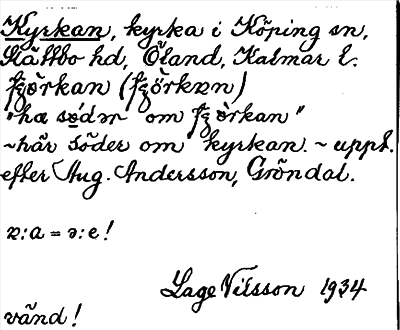 Kyrkan, kyrka i Köping sn,
Slättbo hd, Öland, Kalmar l.
"hæ södər om
~ här söder om kyrkan. ~ uppt.
efter Aug. Andersson, Gröndal.
ɐ: a = ə: e!
Lage Nilsson 1934
vänd!